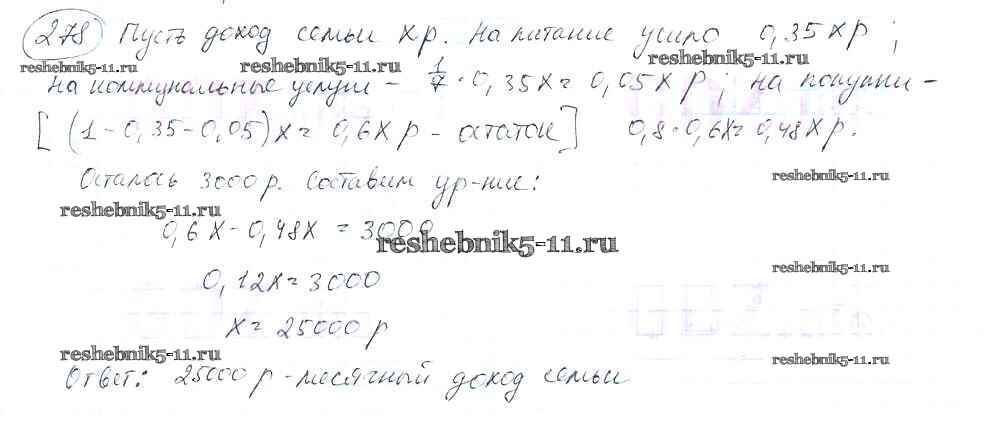 278 Пусть доход семьи x р. На питание ушло 0,35x р;
reshebnik5-11.ru reshebnik5-11.ru reshebnik5-11.ru
на коммунальные услуги - 1/7 · 0,35x = 0,05x р; на покупки -
[(1 - 0,35 - 0,05)x = 0,6x р - остаток] 0,8 · 0,6x = 0,48x р.
Осталось 3000 р. Составим ур-ние:
reshebnik5-11.ru
reshebnik5-11.ru
0,6x - 0,48x = 3000
reshebnik5-11.ru
reshebnik5-11.ru
0,12x = 3000
x = 25000 р
reshebnik5-11.ru reshebnik5-11.ru
Ответ: 25000 р - месячный доход семьи